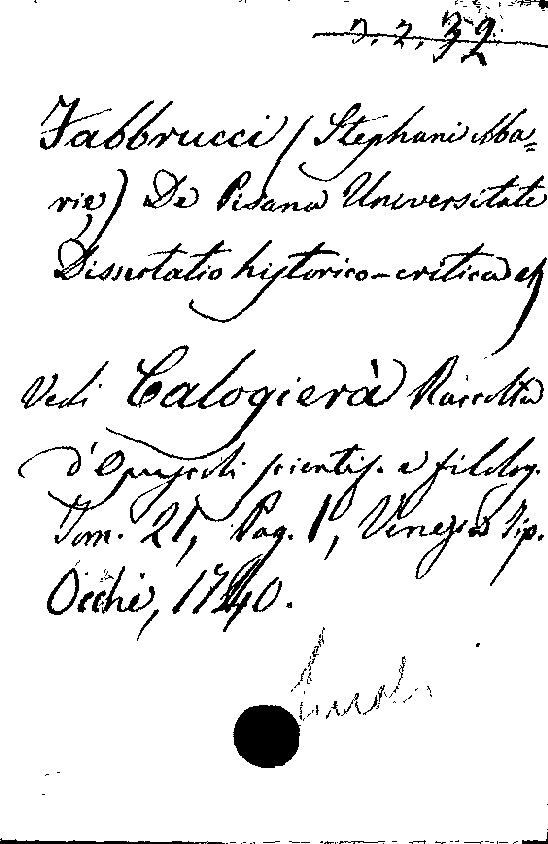 3. 2. 32
Fabbrucci (Stephani Ma=
rie) De Pisana Universitate
Dissertatio historico-critica
Vedi Calogierà Raccolta
d'Opuscoli scientif. e filolog.
Tom. 21, Pag. 1, Venezia Tip.
Occhi, 1740.